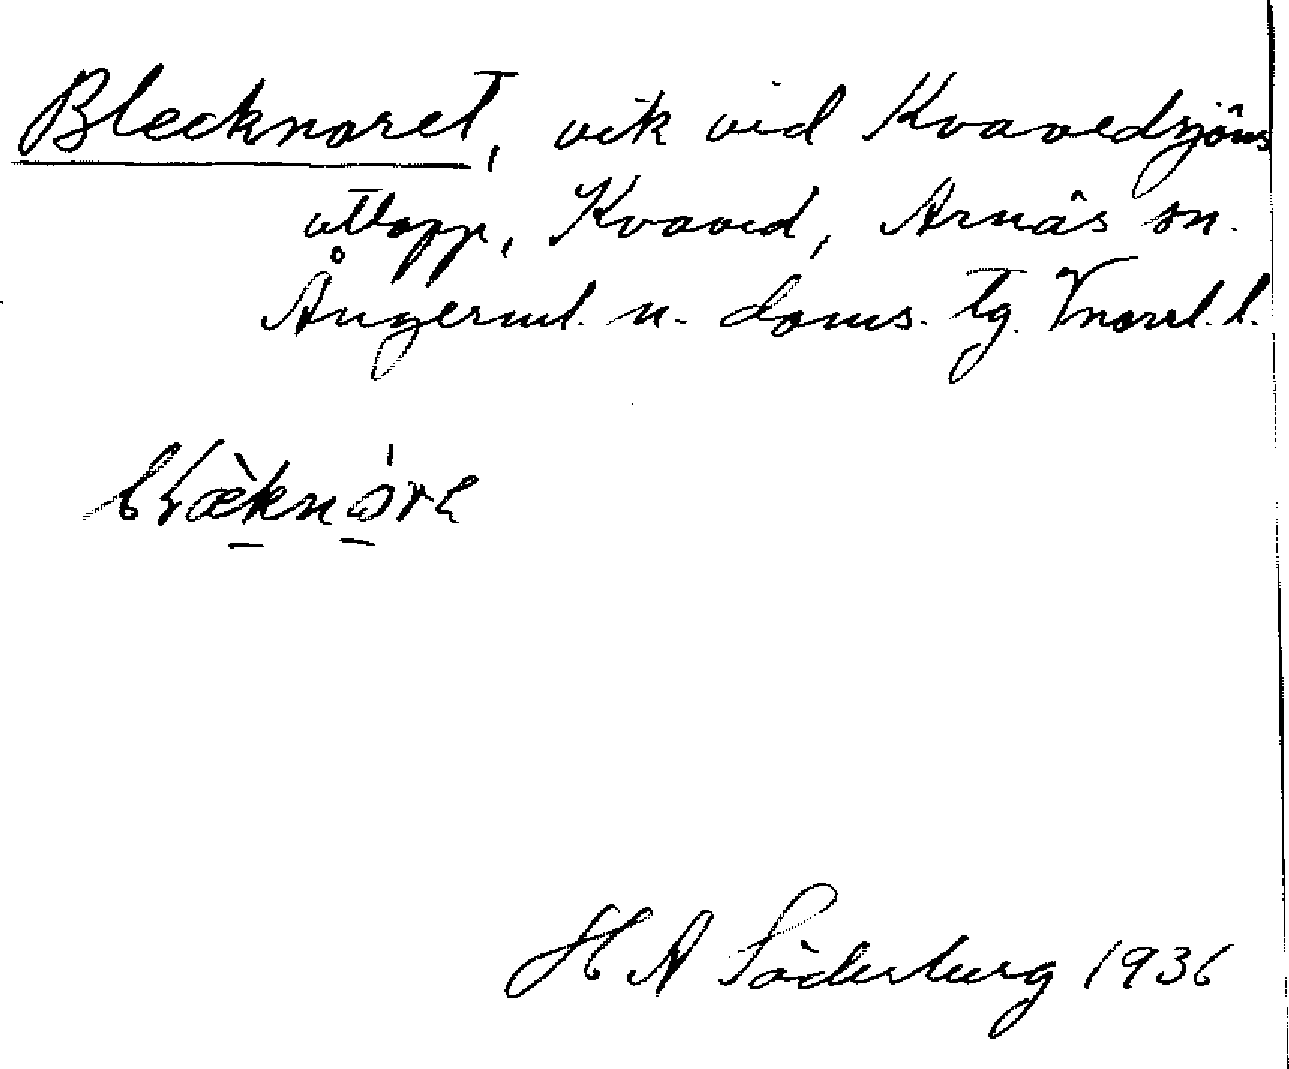 Blecknoret, vik vid Kvavedsjöns
utlopp, Kvaved, Arnäs sn.
Ångerml. n. doms. tg. Vnorrl. l.
H A Söderberg 1936